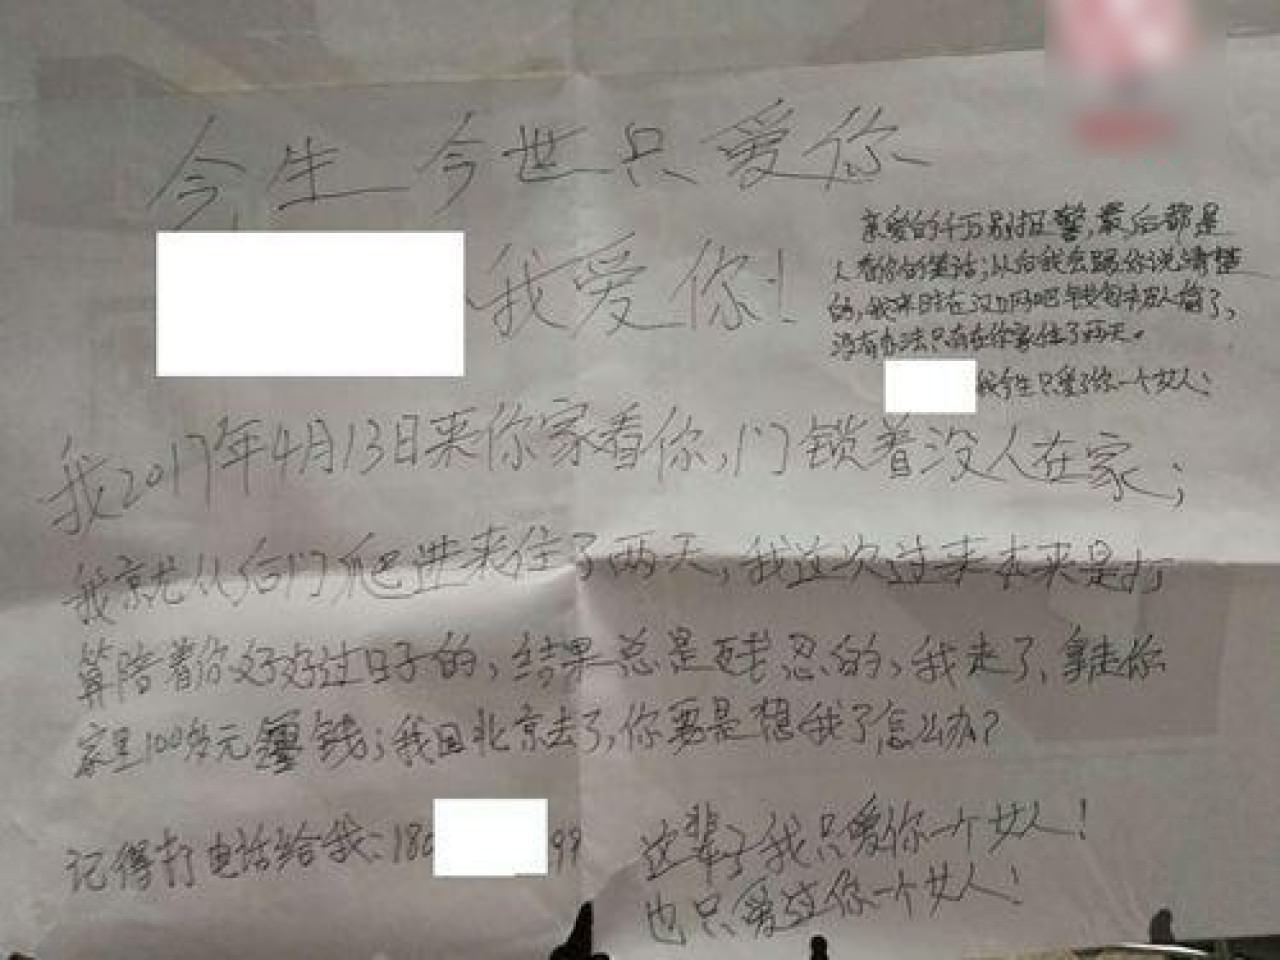 今生今世只爱你
我爱你!
亲爱的千万别报警,最后都是
人看你的笑话;以后我会跟你说清楚
的,我来时在汉口网吧钱包被人偷了,
没有办法只有在你家住了两天。
我今生只爱了你一个女人!
我2017年4月13日来你家看你,门锁着没人在家;
我就从后门爬进来住了两天,我这次过来本来是打
算陪着你好好过日子的,结果总是残忍的,我走了,拿走你
家里100多元零钱;我回北京去了,你要是想我了怎么办?
记得打电话给我:180 99
这辈子我只爱你一个女人!
也只爱过你一个女人!